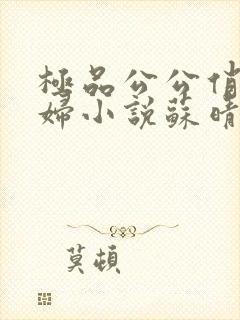 極品公公俏
婦小說蘇晴
莫頓